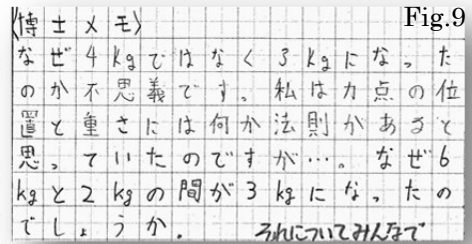 Fig.9
〈博士メモ〉
なぜ4kgではなく3kgになった
のか不思義です。私は力点の位
置と重さには何か法則があると
思っていたのですが…。なぜ6
kgと2kgの間が3kgになったの
でしょうか。 それについてみんなで